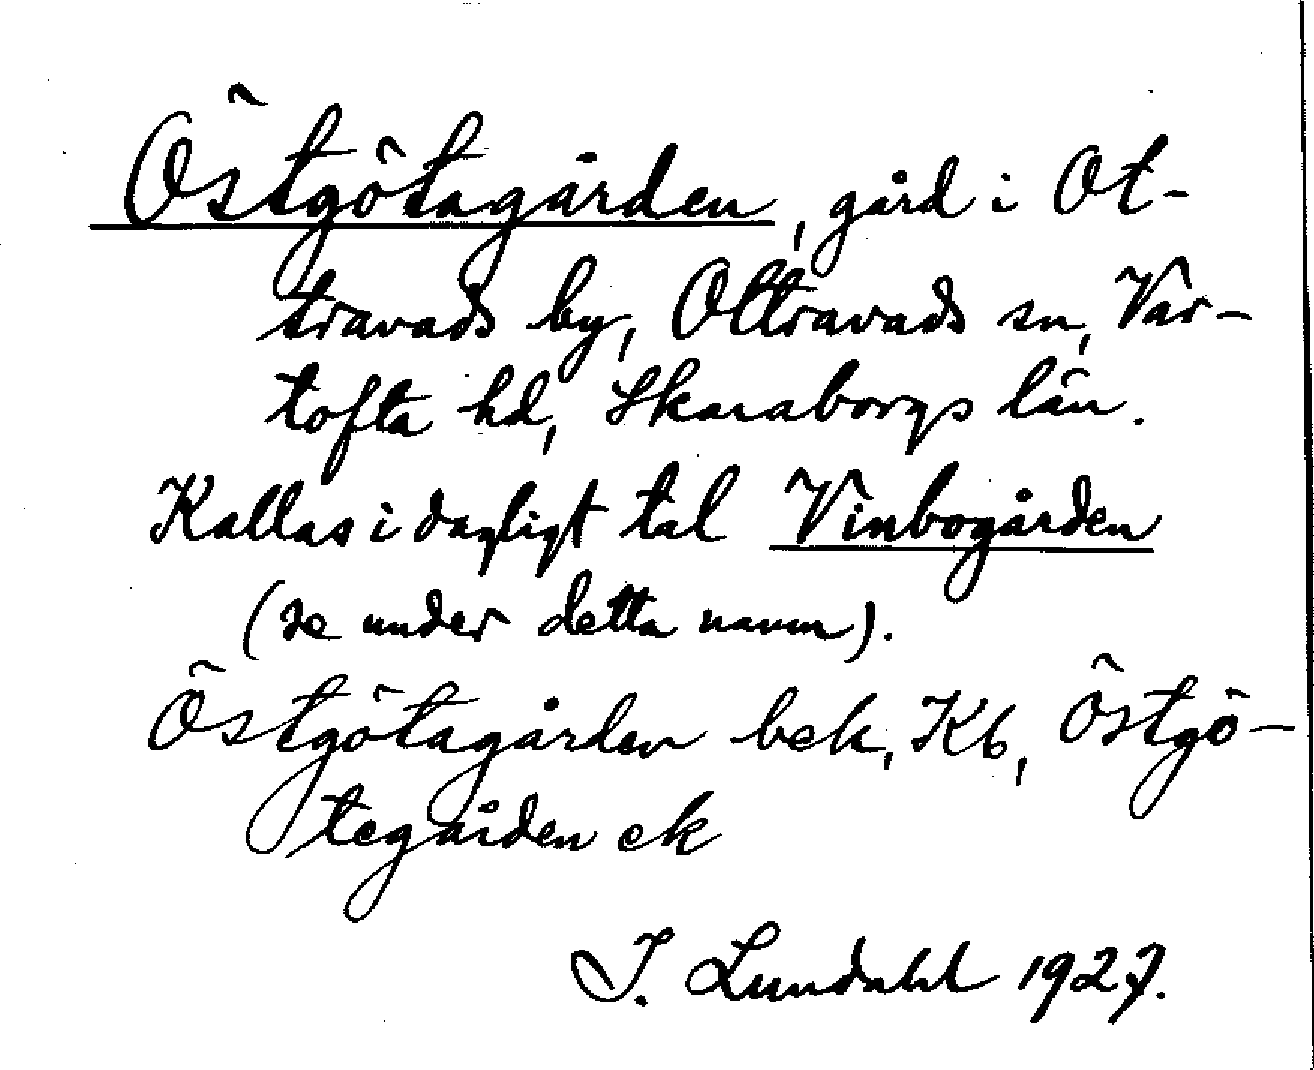 Östgötagården, gård i Ot-
travads by, Ottravads sn, Var-
tofta hd, Skaraborgs län.
Kallas i dagligt tal Vinbogården
(se under detta namn).
Östgötagården bek, Kb, Östgö-
tegården ek
I. Lundahl 1927.